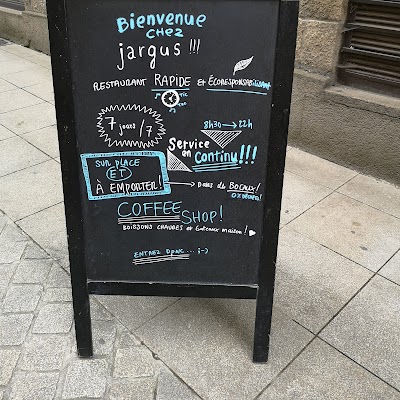 Bienvenue
CHEZ
jargus !!!
RESTAURANT RAPIDE et ÉCORESPONSABILISANT
7 jours /7
8H30 → 22H
Service en Continu !!!
SUR PLACE
ET
À EMPORTER !
→ DANS des BOCAUX !
COFFEE SHOP !
BOISSONS CHAUDES et Gâteaux maison !
ENTREZ DONC ... ;-)